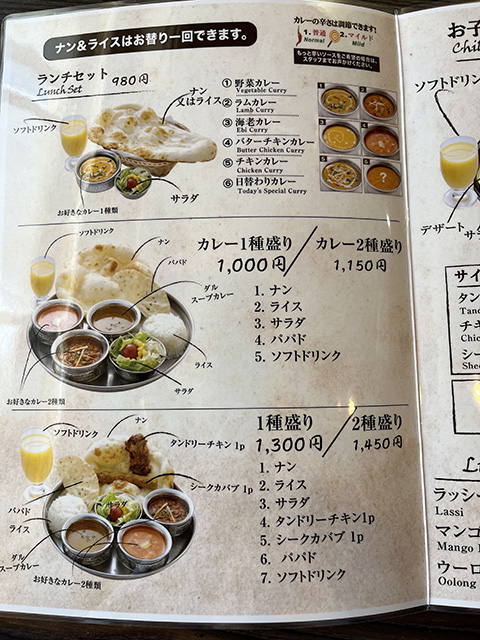 ナン&ライスはお替り一回できます。
カレーの辛さは調節できます!
1. 普通 2. マイルド
Normal Mild
もっと辛いソースをご希望の場合は、
スタッフまでお声がけください。
ランチセット 980円
Lunch Set
ソフトドリンク
ナン
又はライス
サラダ
お好きなカレー1種類
① 野菜カレー
Vegetable Curry
② ラムカレー
Lamb Curry
③ 海老カレー
Ebi Curry
④ バターチキンカレー
Butter Chicken Curry
⑤ チキンカレー
Chicken Curry
⑥ 日替わりカレー
Today's Special Curry
1 2
3 4
5 6
?
ソフトドリンク
ナン
パパド
ダル
スープカレー
サラダ
お好きなカレー2種類
カレー1種盛り/カレー2種盛り
1,000円 1,150円
1. ナン
2. ライス
3. サラダ
4. パパド
5. ソフトドリンク
ソフトドリンク
ナン
タンドリーチキン 1p
シークカバブ 1p
サラダ
パパド
ライス
ダル
スープカレー
お好きなカレー2種類
1種盛り/2種盛り
1,300円 1,450円
1. ナン
2. ライス
3. サラダ
4. タンドリーチキン1p
5. シークカバブ 1p
6. パパド
7. ソフトドリンク
お子
Chil
ソフトドリン
デザート
サイ
タン
Tand
チキ
Chic
シー
Shee
Lu
ラッシー
Lassi
マンゴ
Mango
ウーロ
Oolong